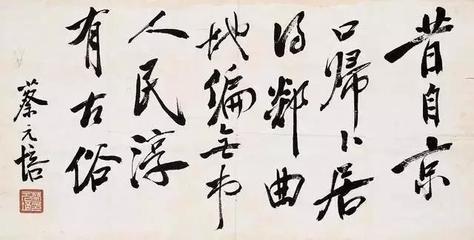 昔自京
口歸卜居
得鄰曲
地編無市
人民淳
有古俗
蔡元培